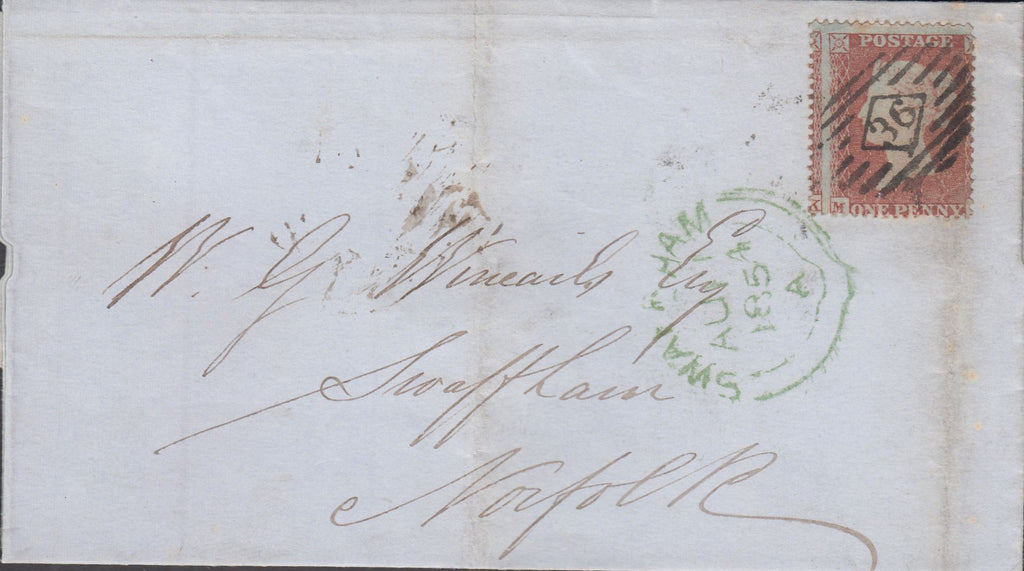 POSTAGE
36
M ONE PENNY
SWAFFHAM
AU
1854
A
W. G. Wincarls Esq
Swaffham
Norfolk